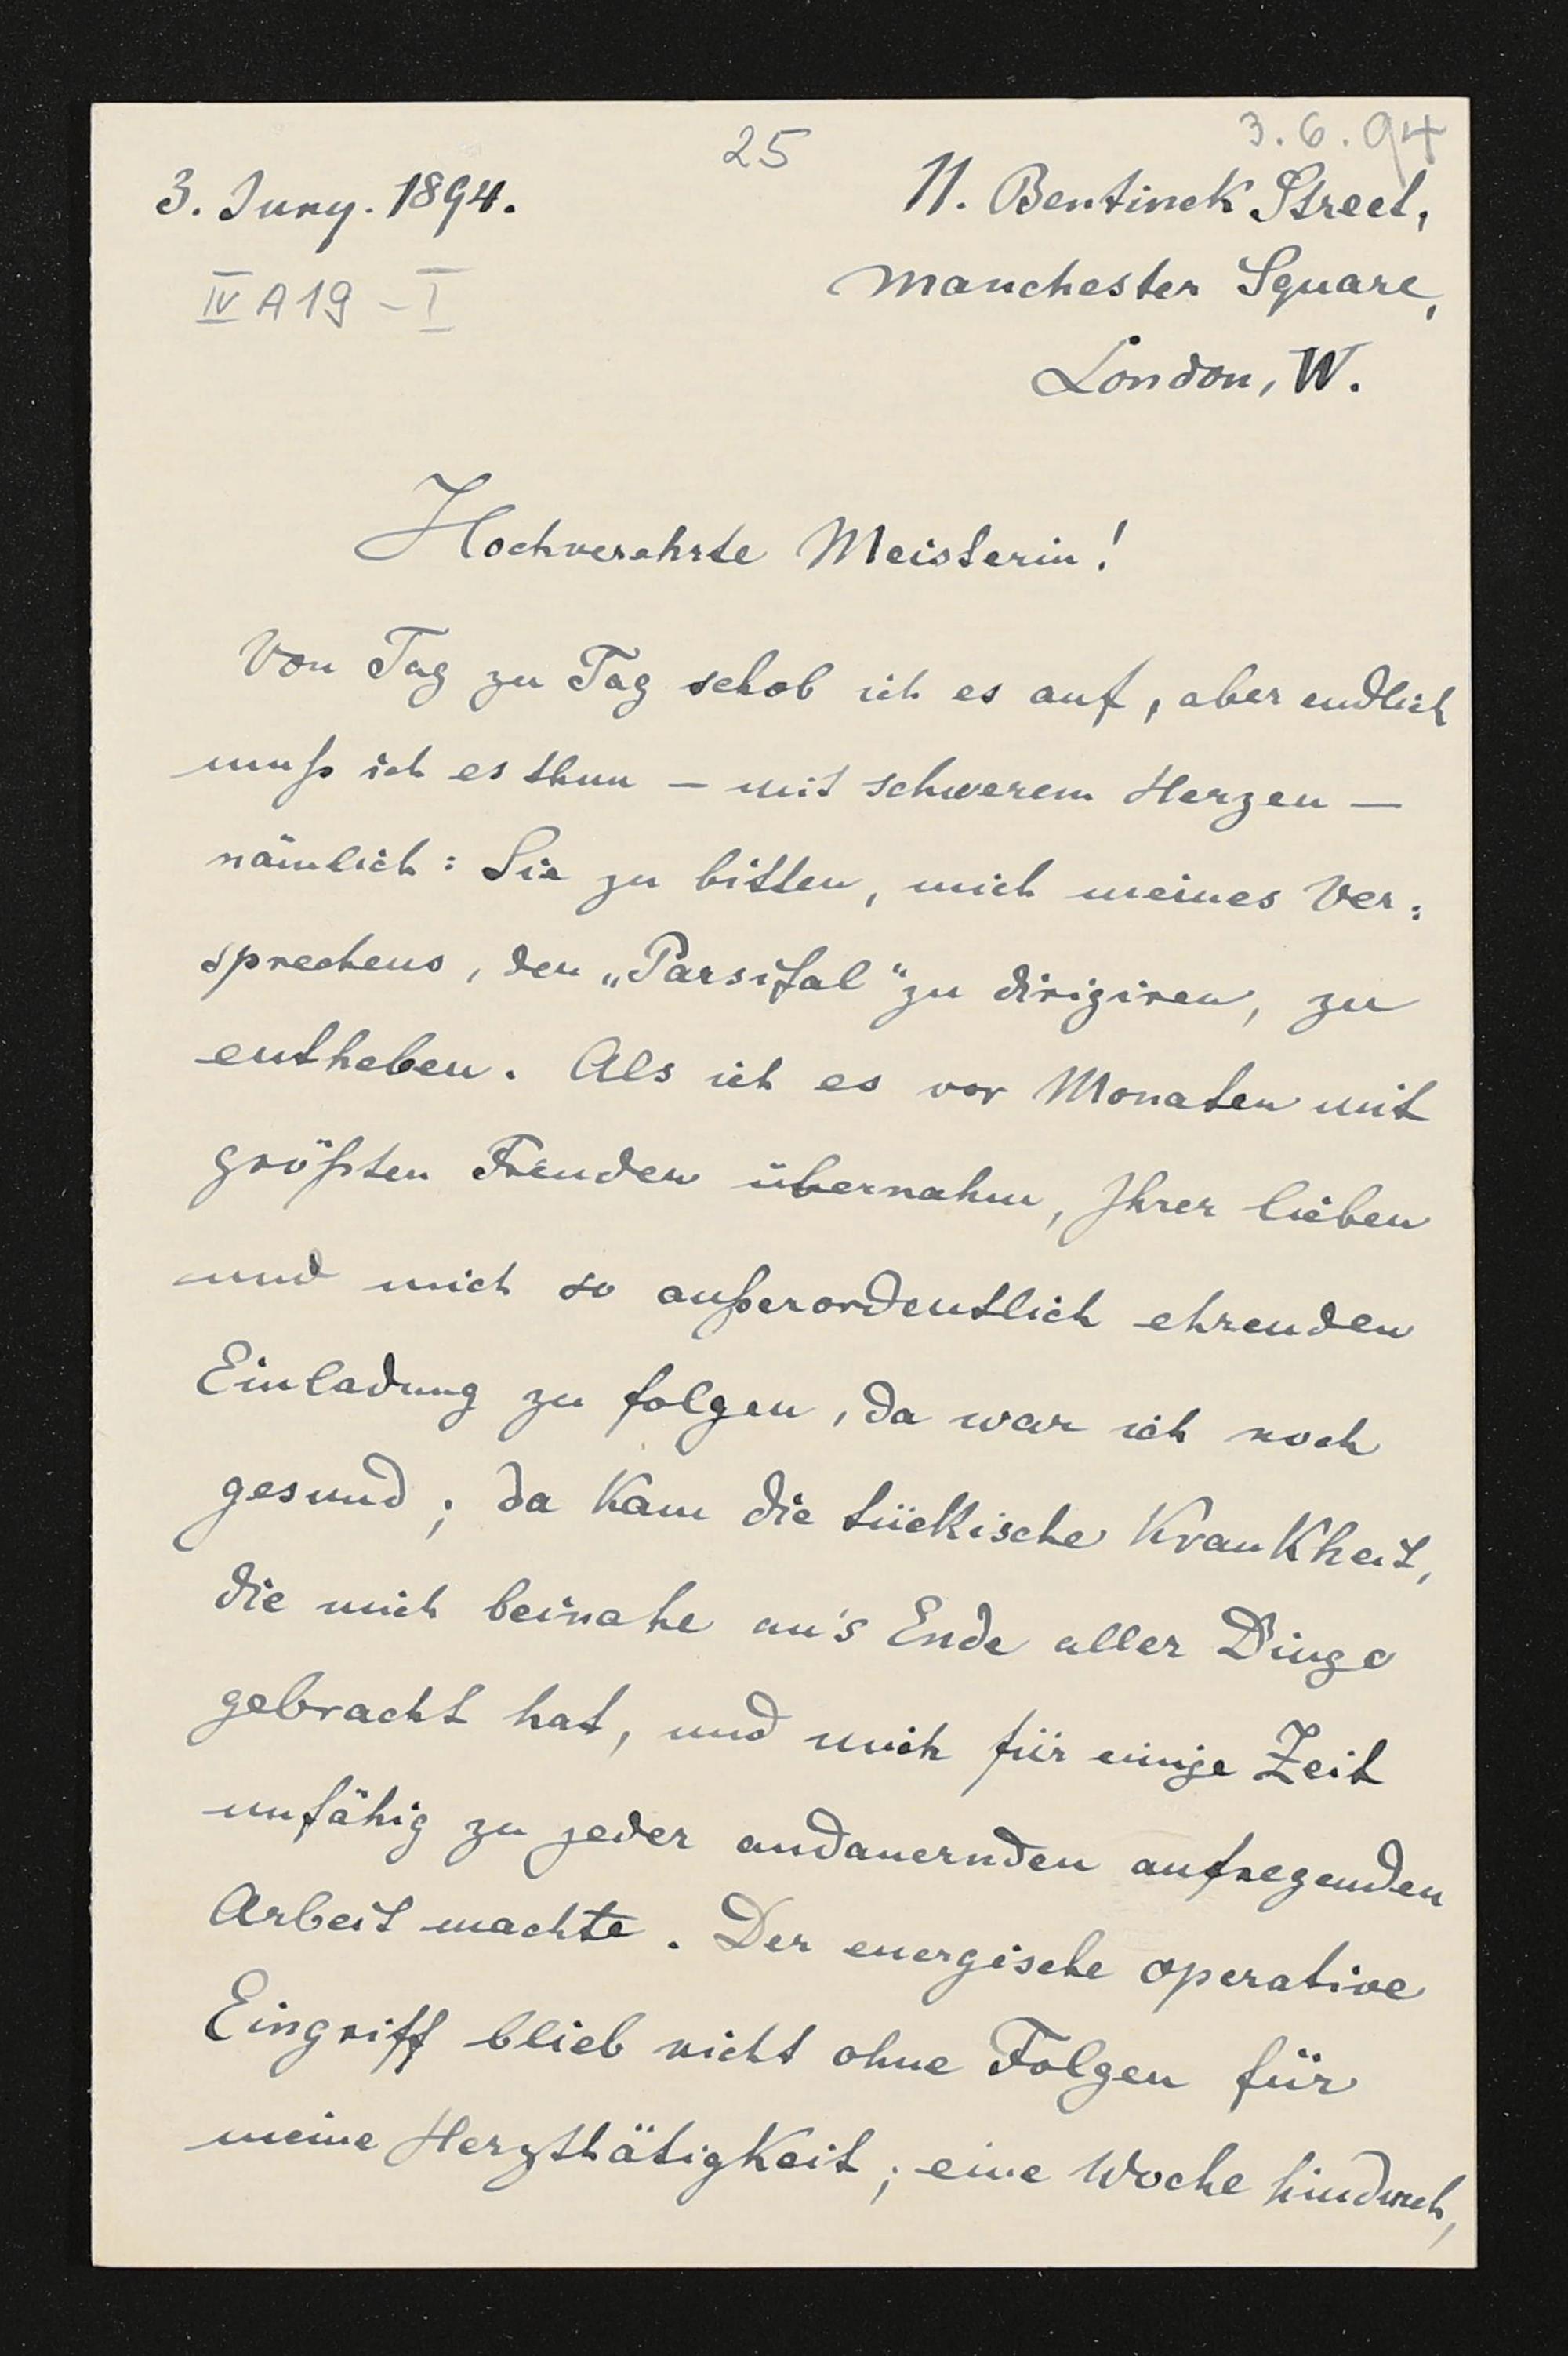 25
3.6.94
3. Juny. 1894.
11. Bentinck Street,
IV A 19 - I
Manchester Square,
London, W.
Hochverehrte Meisterin!
Von Tag zu Tag schob ich es auf, aber endlich
muß ich es thun – mit schwerem Herzen –
nämlich: Sie zu bitten, mich meines Ver=
sprechens, den „Parsifal“ zu dirigiren, zu
entheben. Als ich es vor Monaten mit
größten Freuden übernahm, Ihrer lieben
und mich so außerordentlich ehrenden
Einladung zu folgen, da war ich noch
gesund; da kam die tückische Krankheit,
die mich beinahe an's Ende aller Dinge
gebracht hat, und mich für einige Zeit
unfähig zu jeder andauernden aufregenden
Arbeit machte. Der energische operative
Eingriff blieb nicht ohne Folgen für
meine Herzthätigkeit; eine Woche hindurch,